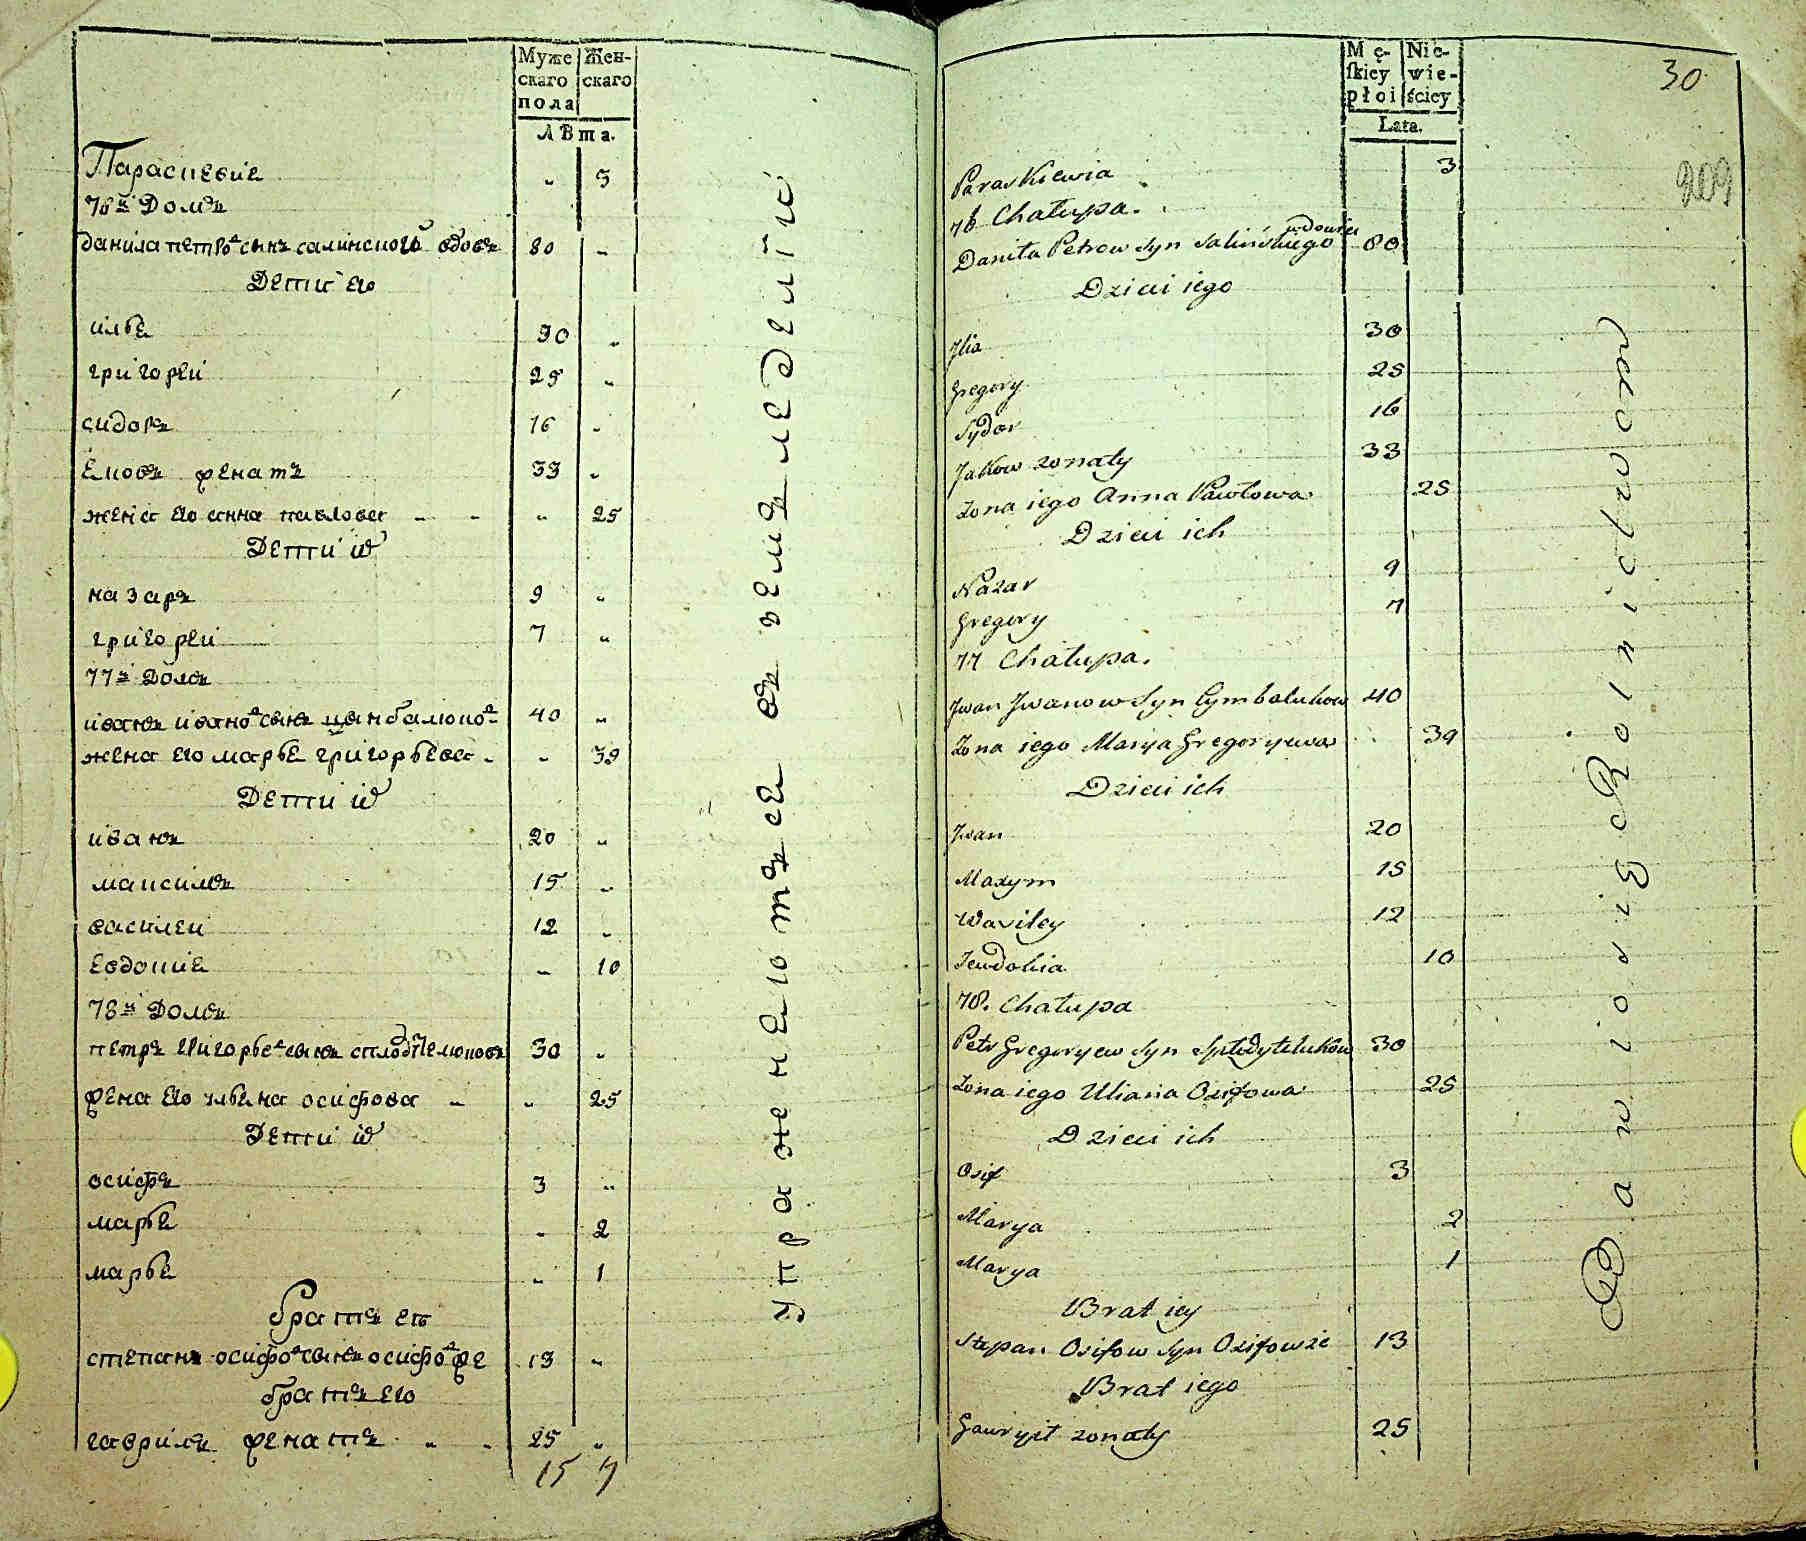 Муже Жен-
скаго скаго
пола
лѣта.
Параскевиѧ „ 3
76й Домъ
данила петровъ сынъ салинского вдовъ 80 „
Дети его
илья 30 „
григореи 25 „
сидоръ 16 „
Ековъ женатъ 33 „
жена его анна павлова „ 25
Дети их
назаръ 9 „
григореи 7 „
77й Домъ
иванъ ивановъ сынъ цымбалюковъ 40 „
жена его марья григорьева „ 39
Дети их
иванъ 20 „
максимъ 15 „
василеи 12 „
евдокия „ 10
78й Домъ
петръ григорьевъ сынъ 30 „
жена его ульяна осифова „ 25
Дети их
осифъ 3 „
марья „ 2
марья „ 1
братъ еѧ
степанъ осифовъ сынъ 13 „
братъ его
гаврилъ женатъ 25 „
15 7
упражняютъся въ земледелие
30
209
Mę- Nie-
ſkiey wie-
płoi ściey
Lata.
Paraskiewia 3
76 Chałupa.
wdowiec
Daniła Petrow Syn Salińskiego 80
Dzieci iego
Jlia 30
Gregory 25
Sydor 16
Jakow zonaty 33
Zona iego Anna Pawłowa 25
Dzieci ich
Nazar 9
Gregory 7
77 Chałupa.
Jwan Jwanow Syn Cymbalukow 40
Zona iego Marya Gregoryewa 39
Dzieci ich
Jwan 20
Maxym 15
Wasiley 12
Jewdokia 10
78. Chałupa
Petr Gregoryew Syn 30
Zona iego Uliana Osifowa 25
Dzieci ich
Osif 3
Marya 2
Marya 1
Brat iey
Stepan Osifow Syn 13
Brat iego
Gawryił zonaty 25
Bawio się Rolnictwem